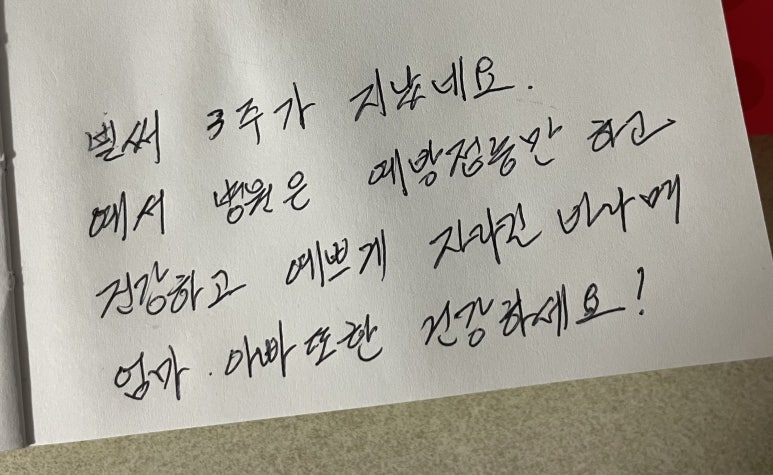 벌써 3주가 지났네요.
에서 병원은 예방접종만 하고
건강하고 예쁘게 자라길 바라며
엄마. 아빠 또한 건강하세요!